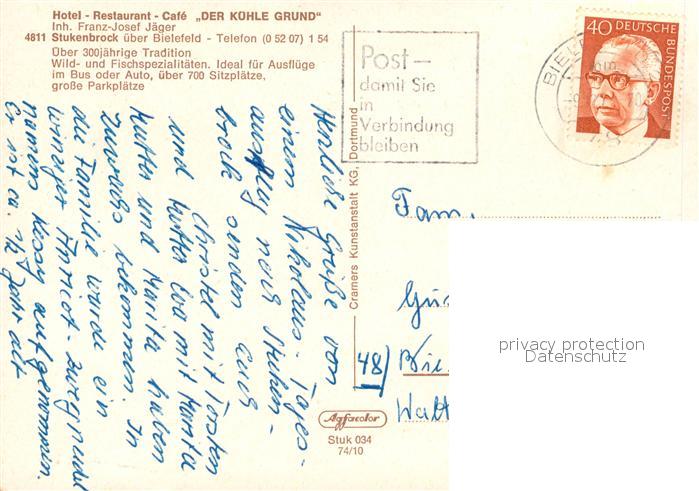 Hotel - Restaurant - Café „DER KÜHLE GRUND"
Inh. Franz-Josef Jäger
4811 Stukenbrock über Bielefeld - Telefon (0 52 07) 1 54
Über 300jährige Tradition
Wild- und Fischspezialitäten. Ideal für Ausflüge
im Bus oder Auto, über 700 Sitzplätze,
große Parkplätze
Post –
damit Sie
in
Verbindung
bleiben
BIELE
40 DEUTSCHE
BUNDESPOST
Herzliche Grüße von
einem Nikolaus-Tages-
ausflug nach Stuken-
brock senden Euch
Christel mit Torsten
und Mutter Eva mit Marita
Mutter und Marita haben
Zuwachs bekommen. In
die Familie wurde ein
winziger Apricot-Zwergpudel
namens Kessy aufgenommen.
Er ist ca. 1/4 Jahr alt
Cramers Kunstanstalt KG, Dortmund
Fam.
Gü
48) Bie
Walt
Agfacolor
Stuk 034
74/10
privacy protection
Datenschutz